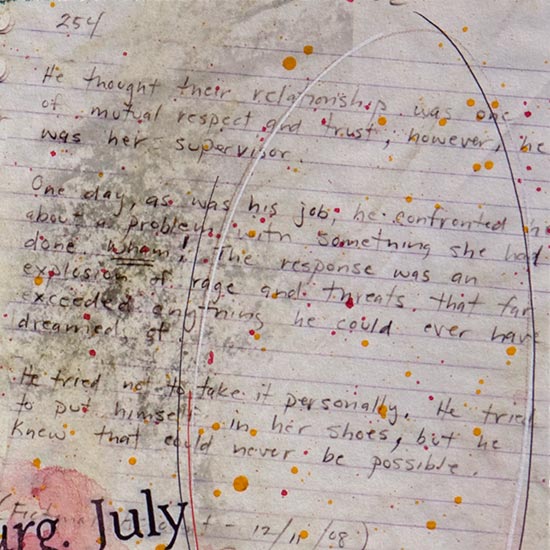 254
He thought their relationship was one
of mutual respect and trust, however, he
was her supervisor.
One day, as was his job, he confronted h
about a problem with something she had
done wham! The response was an
explosion of rage and threats that far
exceeded anything he could ever have
dreamed of.
He tried not to take it personally. He tried
to put himself in her shoes, but he
knew that could never be possible.
(Fict - 12/11/08)
urg. July